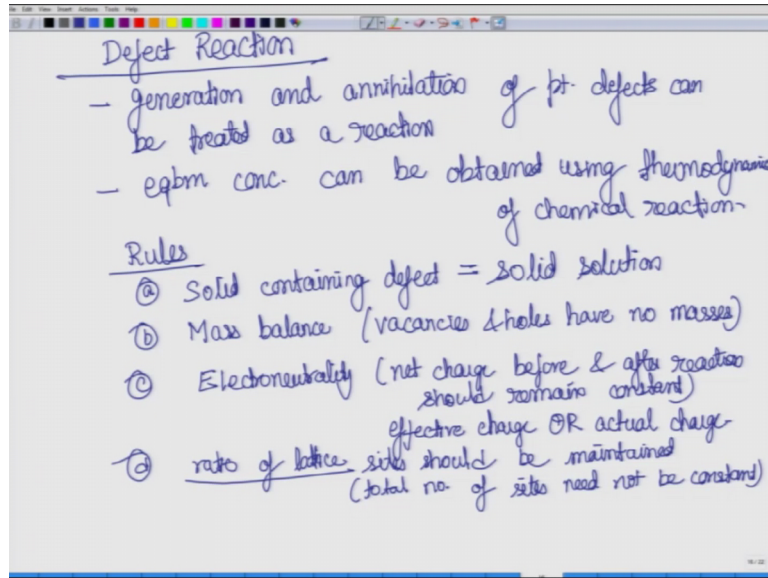 Edit View Insert Actions Tools Help
Defect Reaction
- generation and annihilation of pt. defects can
be treated as a reaction
- eqbm conc. can be obtained using thermodynamics
of chemical reaction-
Rules
(a) Solid containing defect = solid solution
(b) Mass balance (vacancies & holes have no masses)
(c) Electroneutrality (net charge before & after reaction
should remain constant)
effective charge OR actual charge-
(d) ratio of lattice sites should be maintained
(total no. of sites need not be constant)